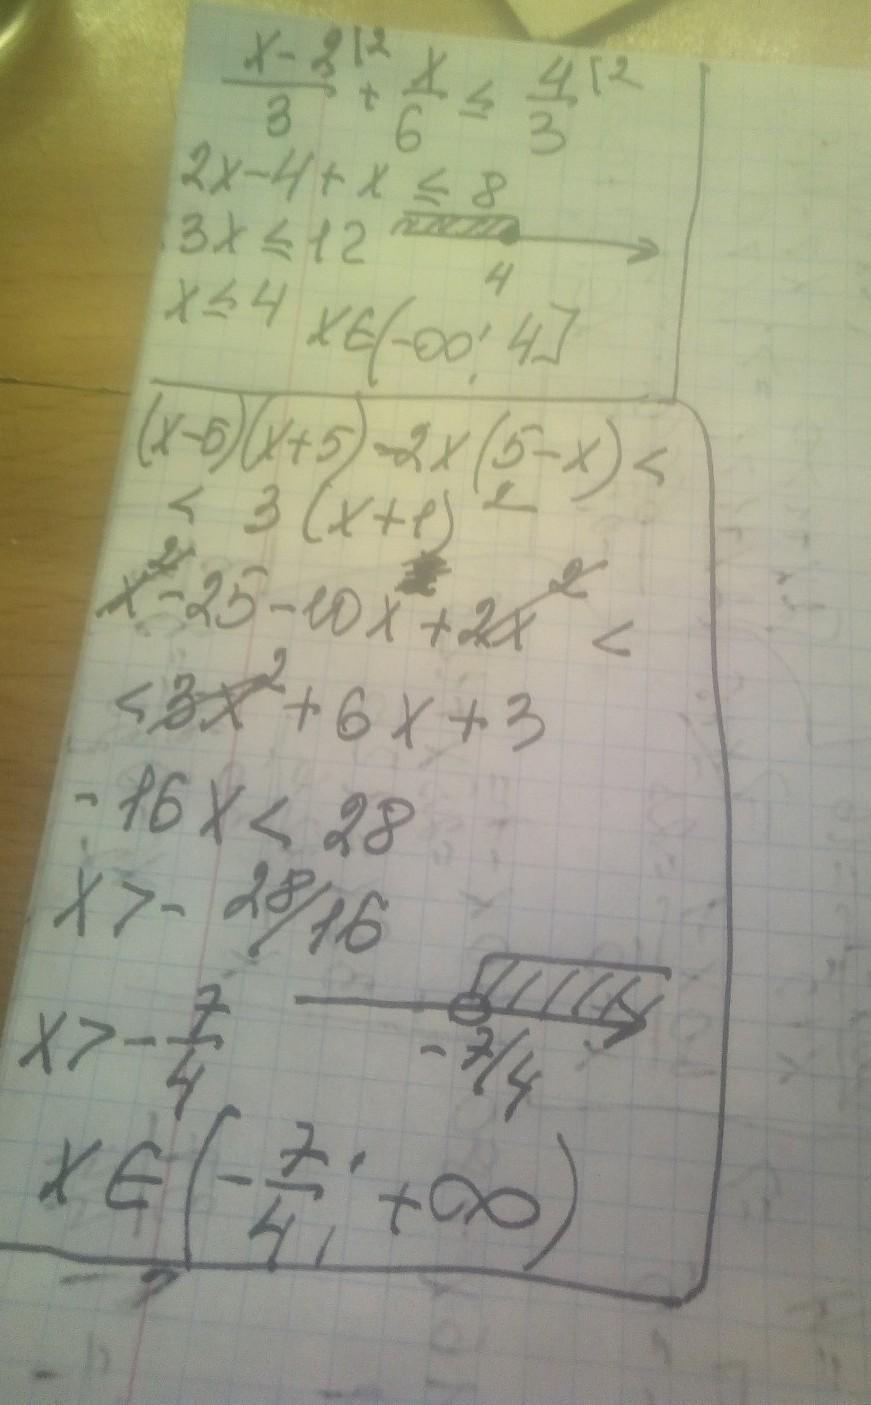 x-2⌈2/3 + x/6 ≤ 4/3⌈2
2x-4+x ≤ 8
3x ≤ 12
4
x ≤ 4
x∈(-∞; 4]
(x-5)(x+5)-2x(5-x) <
< 3(x+1)²
x²-25-10x+2x² <
<3x²+6x+3
-16x < 28
x > - 28/16
x > - 7/4
- 7/4
x ∈ (- 7/4; +∞)